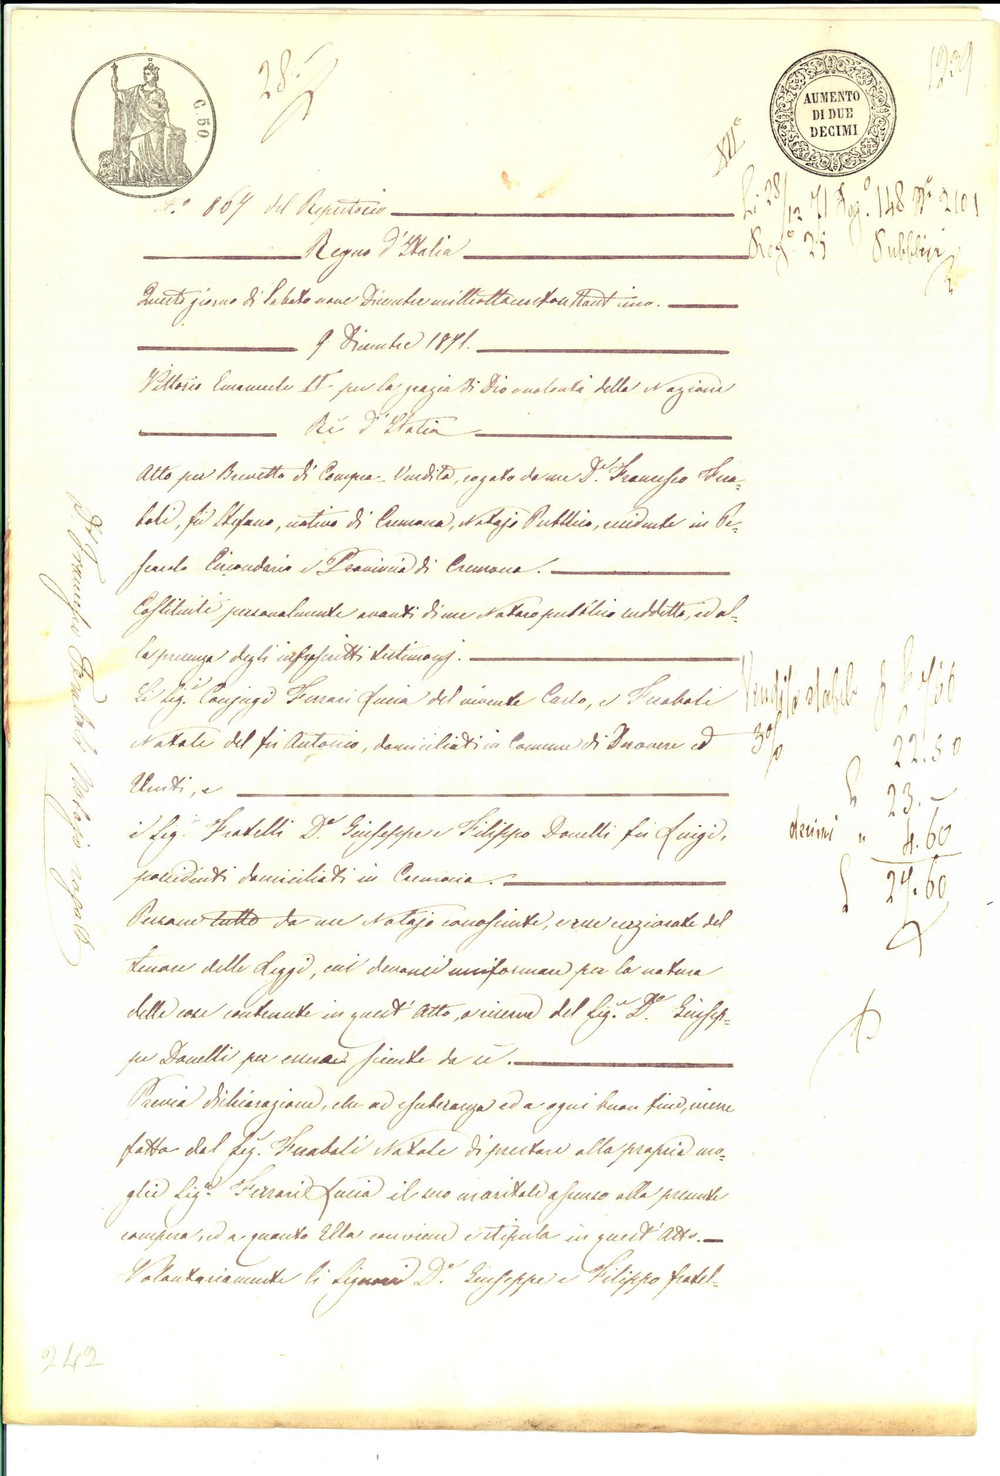 C. 50
28.
AUMENTO
DI DUE
DECIMI
1239
XII.°
N.° 867 del Repertorio
Li 28/12 71 Fog.° 148 N° 2101
Regno d'Italia
Reg.° 25 Pubblici
Questo giorno di Sabato nove Dicembre milleottocentosettant'uno.
9 Dicembre 1871.
Vittorio Emanuele II° per la grazia di Dio e volontà della Nazione
Rè d'Italia
Atto per Brevetto di Compra-Vendita, rogato da me D.r Francesco Fna-
boli, fu Stefano, nativo di Cremona, Notajo Pubblico, residente in Pe-
scarolo Circondario e Provincia di Cremona.
Costituiti personalmente avanti di me Notaro pubblico suddetto, ed al-
la presenza degli infrascritti testimonj.
Li Sig.i Conjugi Ferrari Lucia del vivente Carlo, e Fnaboli
Natale del fu Antonio, domiciliati in Comune di Duovere ed
Uniti, e
i Sig.i Fratelli D.r Giuseppe e Filippo Donelli fu Luigi,
possidenti domiciliati in Cremona.
Persone tutte da me Notajo conosciute, e rese cerziorate del
tenore delle Leggi, cui devonsi uniformare per la natura
delle cose contenute in quest'Atto, a riserva del Sig.r D.r Giusep-
pe Donelli per essere sciente da sè.
Previa dichiarazione, che ad esuberanza ed a ogni buon fine, viene
fatta dal Sig.r Fnaboli Natale di prestare alla propria mo-
glie Sig.ra Ferrari Lucia il suo maritale assenso alla presente
compera, ed a quanto Ella conviene e stipula in quest'Atto.
Volontariamente li Signori D.r Giuseppe e Filippo fratel-
Vendita stabile £ 766
3% 22.50
£ 23.-
decimi " 4.60
£ 27.60
D.r Francesco Fnaboli Notajo rogato
242